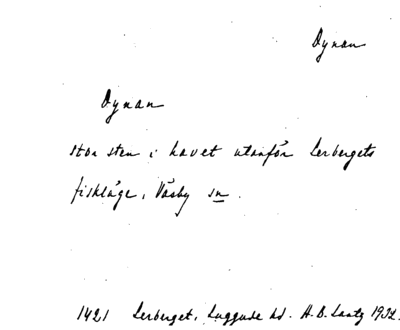 Dynan
Dynan
stor sten i havet utanför Lerbergets
fiskläge, Väsby sn.
1421 Lerberget, Luggude hd. H.B. 1932.